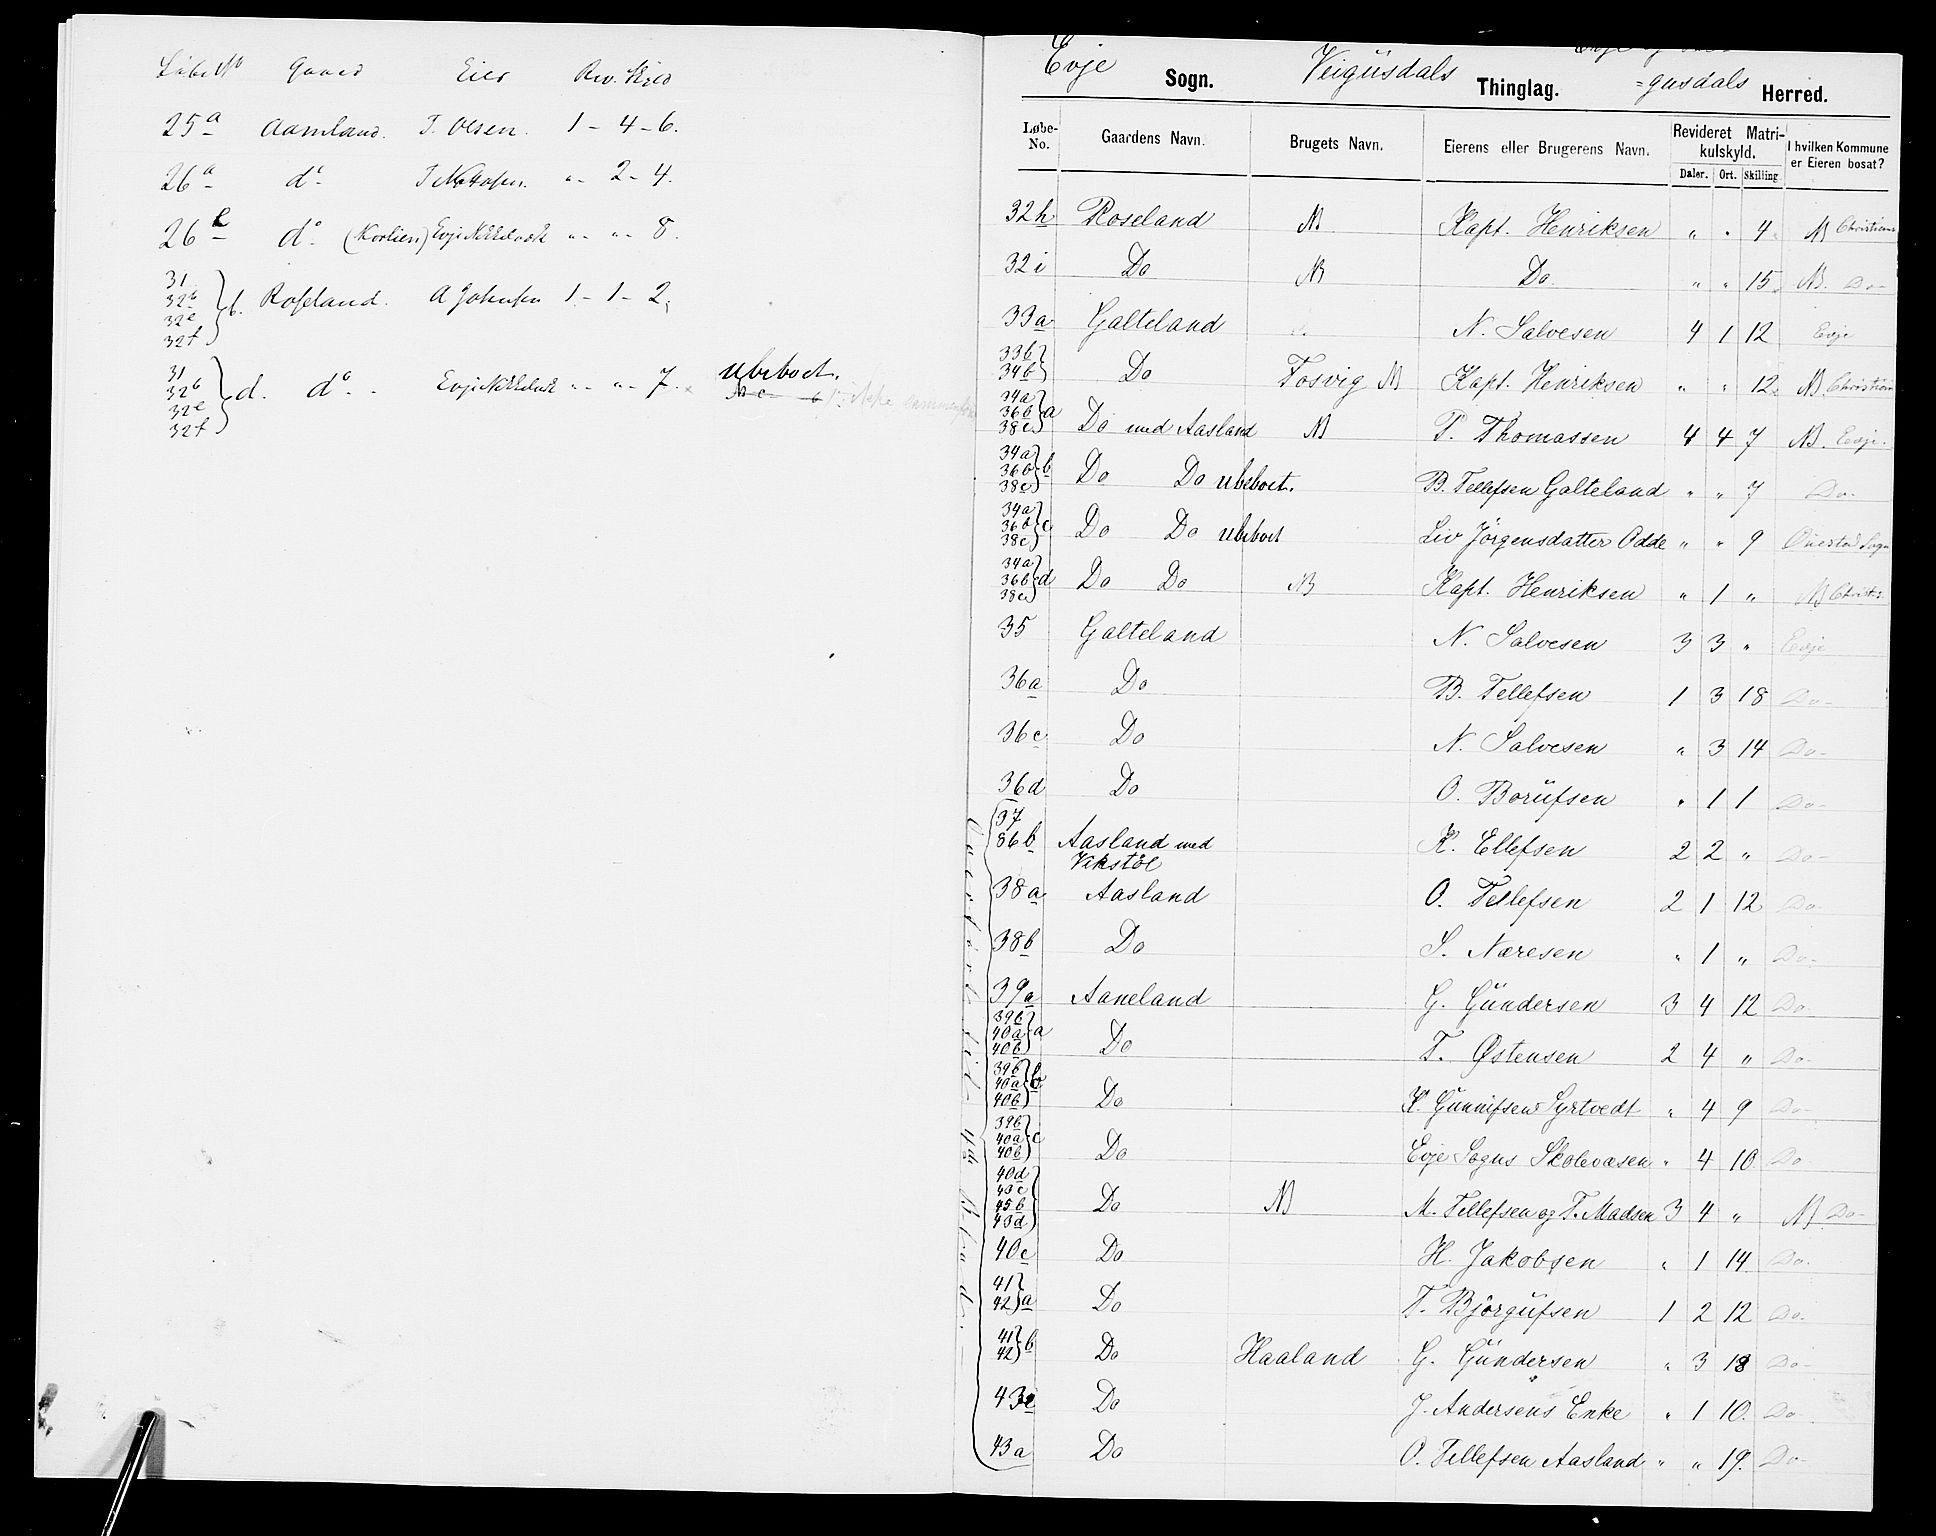 Løbe No Gaard Eier Rev. Skyld
25a Aamland. T. Olsen. 1 - 4 - 6.
26a do „ - 2 - 4.
26b do (Kortlien) Evje Nikkelværk „ - „ - 8.
31
32b
32e
32f } b. Rosseland. A Johnsen 1 - 1 - 2,
31
32b
32e
32f } d. do - Evje Nikkelværk „ - „ - 7. ubeboet.
Evje Sogn. Veigusdals Thinglag. =gusdals Herred.
Løbe-No. Gaardens Navn. Brugets Navn. Eierens eller Brugerens Navn. Revideret Matrikulskyld. Daler. Ort. Skilling I hvilken Kommune er Eieren bosat?
32h Roseland NB Kapt. Henriksen „ „ 4 NB Christians
32i Do NB Do „ „ 15 NB. Do-
33a Galteland N. Salvesen 4 1 12 Evje
33b
34b } Do Fosvig NB Kapt. Henriksen „ „ 12 NB Christian
34a
36b
38c } a Do med Aasland NB T. Thomassen 4 4 7 NB. Evje.
34a
36b
38c } b Do Do ubeboet. B. Tellefsen Galteland „ „ 7 Do-
34a
36b
38c } c Do Do ubeboet Liv Jörgensdatter Odde „ „ 9 Öiestad Sogn
34a
36b
38c } d Do Do NB Kapt. Henriksen „ 1 „ NB Christs.
35 Galteland N. Salvesen 3 3 „ Evje
36a Do B. Tellefsen 1 3 18 Do-
36c Do N. Salvesen „ 3 14 Do-
36d Do O. Borufsen „ 1 1 Do-
37
86b Aasland med Vikstöl K. Ellefsen 2 2 „ Do-
38a Aasland O. Tellefsen 2 1 12 Do
38b Do S. Næresen „ 1 „ Do-
39a Aaneland G. Gundersen 3 4 12 Do-
39b
40a
40b } a Do T. Østensen 2 4 „ Do-
39b
40a
40b } b Do K. Gunnifsen Syrtvedt „ 4 9 Do-
39b
40a
40b } c Do Evje Sogns Skolevæsen „ 4 10 Do
40d
43c
45b
43d } Do NB M. Tellefsen og T. Madsen 3 4 „ NB Do-
40c Do H. Jakobsen „ 1 14 Do.
41
42 } a Do T. Björgufsen 1 2 12 Do.
41
42 } b Do Haaland G. Gundersen „ 3 18 Do-
43e Do J. Andersens Enke „ 1 10. Do-
43a Do O. Tellefsen Aasland „ „ 19. Do-